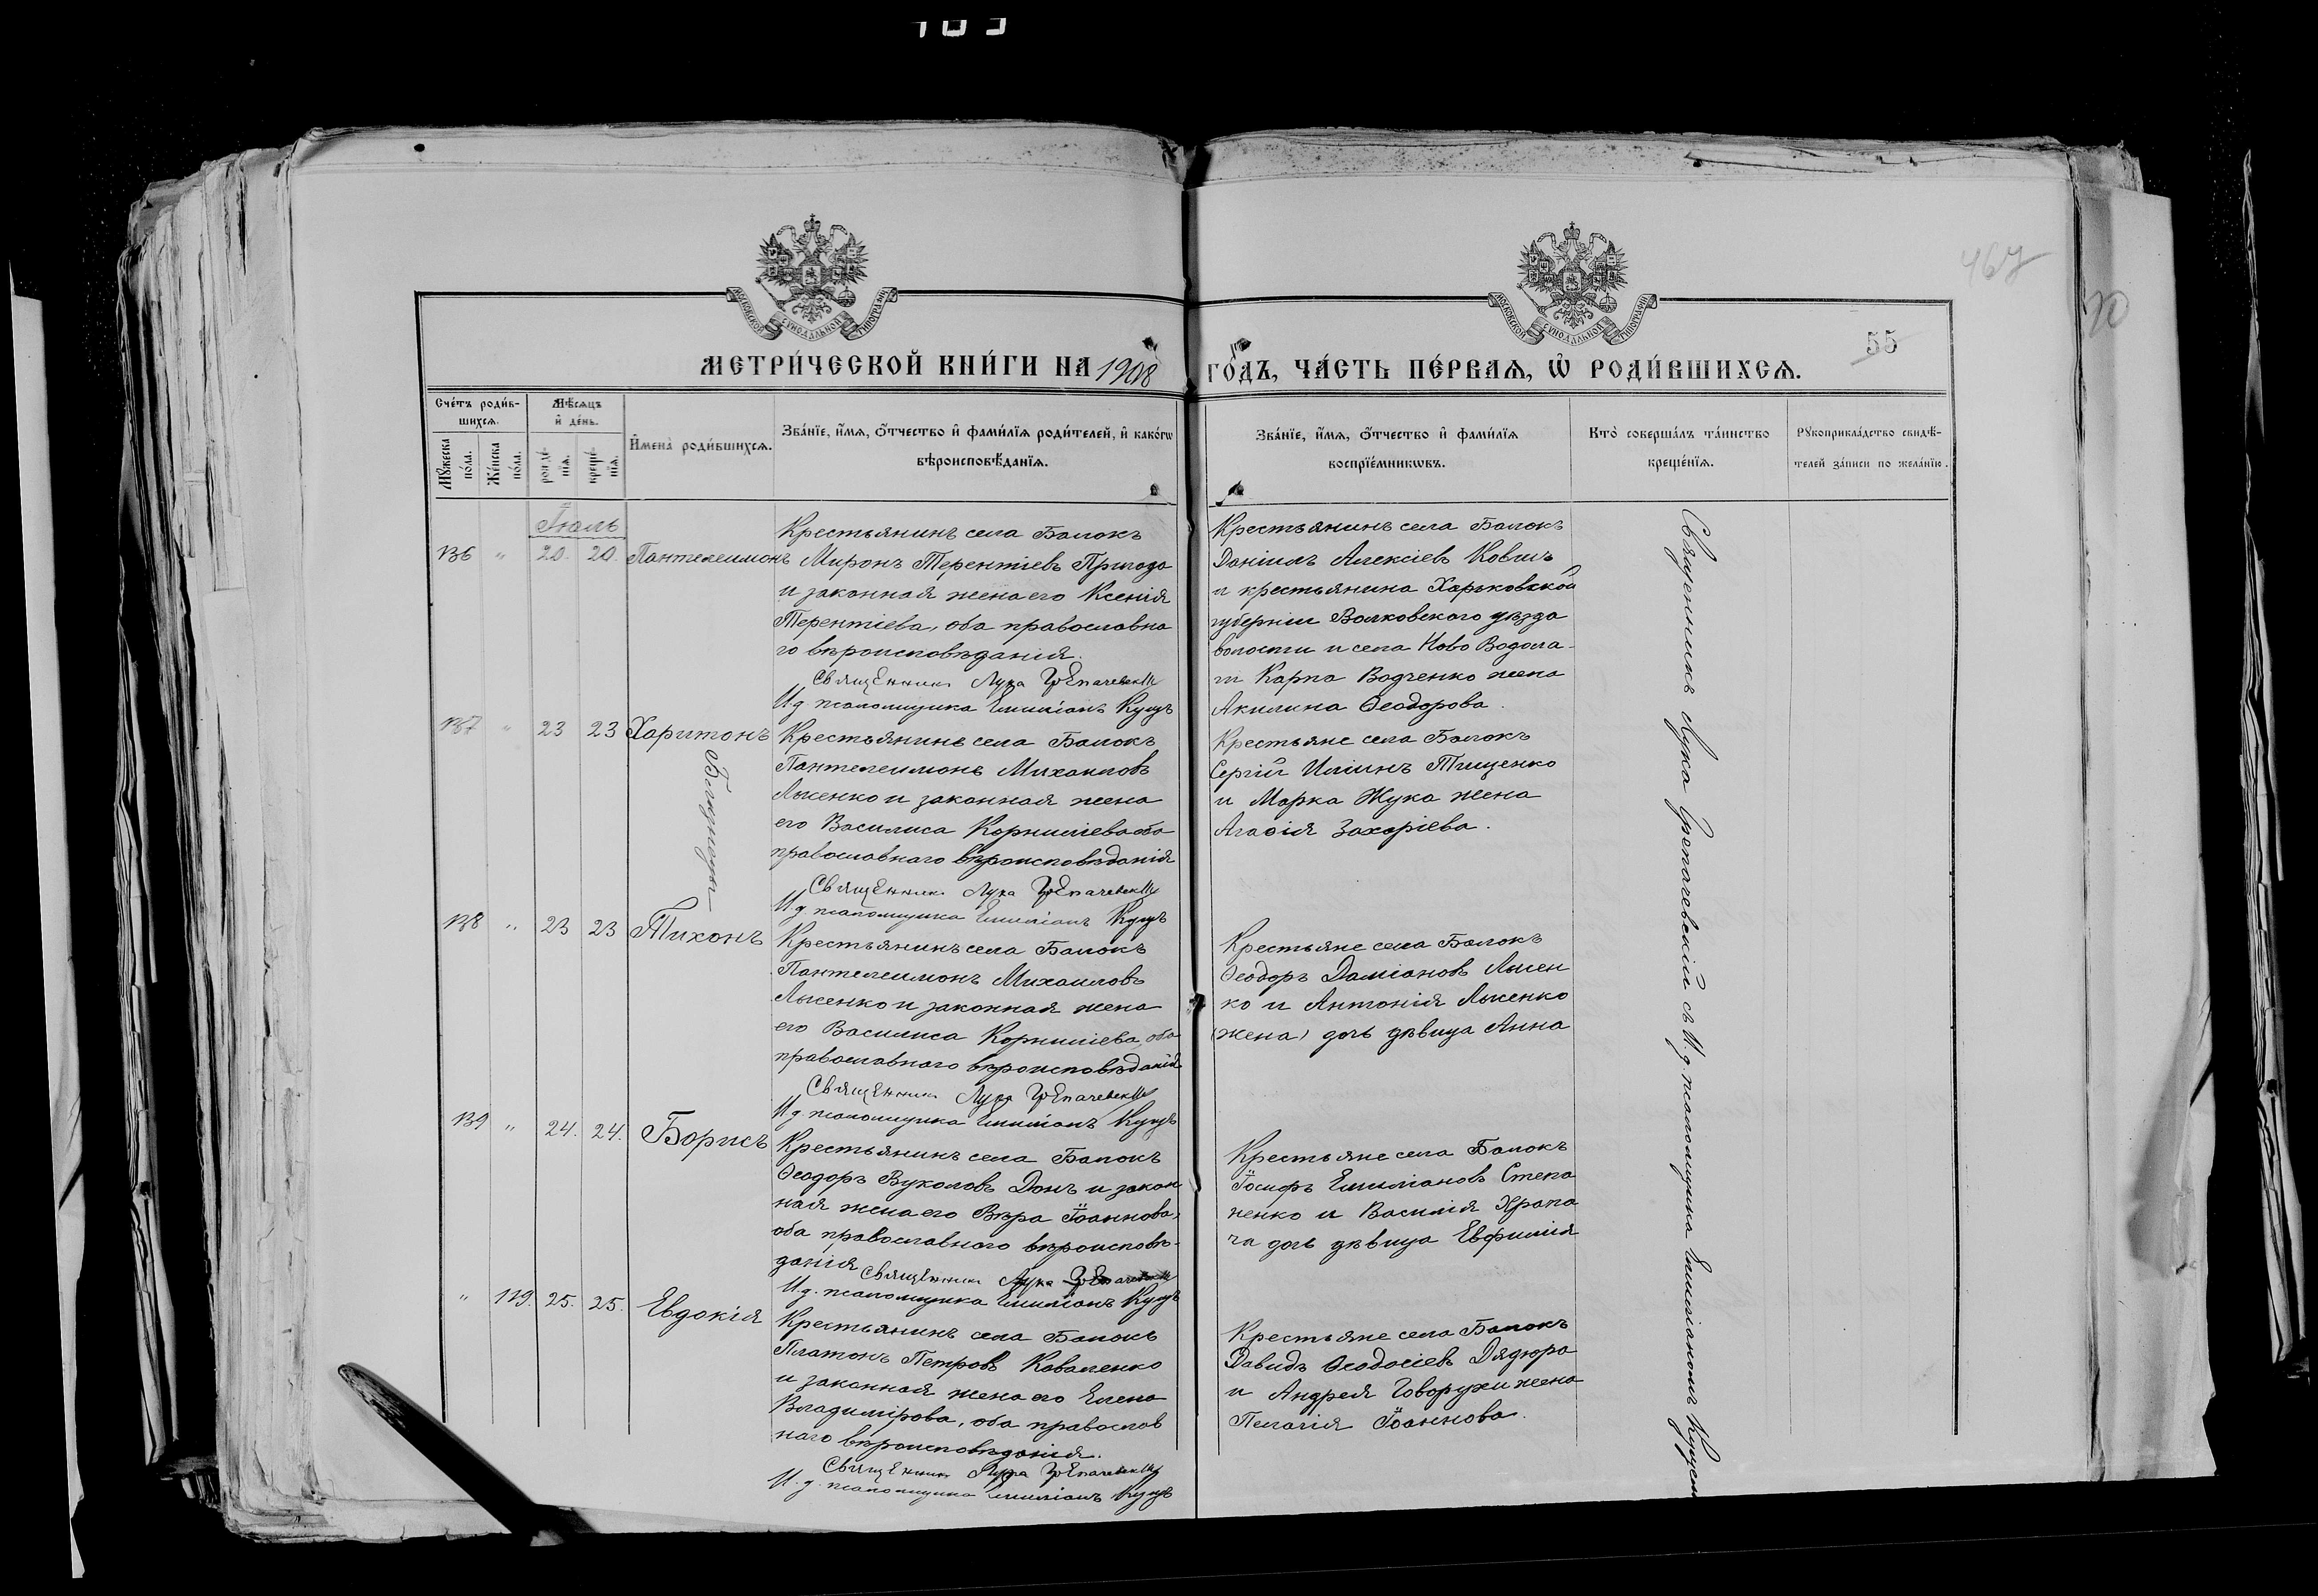 467
20
55
МОСКОВСКОЙ СѴНОДАЛЬНОЙ ТИПОГРАФІИ
МОСКОВСКОЙ СѴНОДАЛЬНОЙ ТИПОГРАФІИ
МЕТРИ́ЧЕСКОЙ КНИ́ГИ НА 1908 ГО́ДЪ, ЧА́СТЬ ПЕ́РВАѦ, Ѽ РОДИ́ВШИХСѦ.
Сче́тъ роди́в-
шихсѧ.
Мꙋ́жеска по́ла.
Же́нска по́ла.
Мѣ́сѧцъ
и҆ де́нь.
рожде́-
нїѧ.
креще́-
нїѧ.
И҆мена̀ роди́вшихсѧ.
Зва́нїе, и҆́мѧ, ѻ҆́тчество и҆ фами́лїѧ роди́телей, и҆ како́гѡ
вѣроисповѣ́данїѧ.
Зва́нїе, и҆́мѧ, ѻ҆́тчество и҆ фами́лїѧ
воспрїе́мникѡвъ.
Кто̀ соверша́лъ та́инство
креще́нїѧ.
Рꙋкоприкла́дство свидѣ́-
телей за́писи по жела́нїю.
Іюль
136 " 20. 20. Пантелеимонъ
Крестьянинъ села Балокъ
Миронъ Терентіевъ Пригода
и законная жена его Ксенія
Терентіева, оба православна
го вѣроисповѣданія.
Священникъ Лука Грепачевскій
И. д. псаломщика Емиліанъ Куцъ
Крестьянинъ села Балокъ
Даніилъ Алексіевъ Коваль
и крестьянина Харьковской
губерніи Валковского уѣзда
волости и села Ново Водола-
ги Карпа Водченко жена
Акилина Ѳеодорова.
137 " 23 23 Харитонъ
Близнецы
Крестьянинъ села Балокъ
Пантелеимонъ Михаиловъ
Лысенко и законная жена
его Василиса Корниліева оба
православнаго вѣроисповѣданія
Священникъ Лука Грепачевскій
И. д. псаломщика Емиліанъ Куцъ
Крестьяне села Балокъ
Сергій Иліинъ Тищенко
и Марка Жука жена
Агаѳія Захаріева.
138 " 23 23 Тихонъ
Крестьянинъ села Балокъ
Пантелеимонъ Михаиловъ
Лысенко и законная жена
его Василиса Корниліева, оба
православнаго вѣроисповѣданія
Священникъ Лука Грепачевскій
И. д. псаломщика Емиліанъ Куцъ
Крестьяне села Балокъ
Ѳеодоръ Даміановъ Лысен
ко и Антонія Лысенко
(жена) дочь дѣвица Анна
139 " 24. 24. Борисъ
Крестьянинъ села Балокъ
Ѳеодоръ Вуколовъ Донъ и закон
ная жена его Вѣра Іоаннова,
оба православнаго вѣроисповѣ-
данія Священникъ Лука Грепачевскій
И. д. псаломщика Емиліанъ Куцъ
Крестьяне села Балокъ
Іосифъ Емиліановъ Степа
ненко и Василія Храпа
ча дочь дѣвица Евфимія
" 129. 25. 25. Евдокія
Крестьянинъ села Балокъ
Платонъ Петровъ Коваленко
и законная жена его Елена
Владимірова, оба православ
наго вѣроисповѣданія.
Священникъ Лука Грепачевскій
И. д. псаломщика Емиліанъ Куцъ
Крестьяне села Балокъ
Давидъ Ѳеодосіевъ Дядюра
и Андрея Говорухи жена
Пелагія Іоаннова.
Священникъ Лука Грепачевскій съ И. д. псаломщика Емиліаномъ Куцемъ